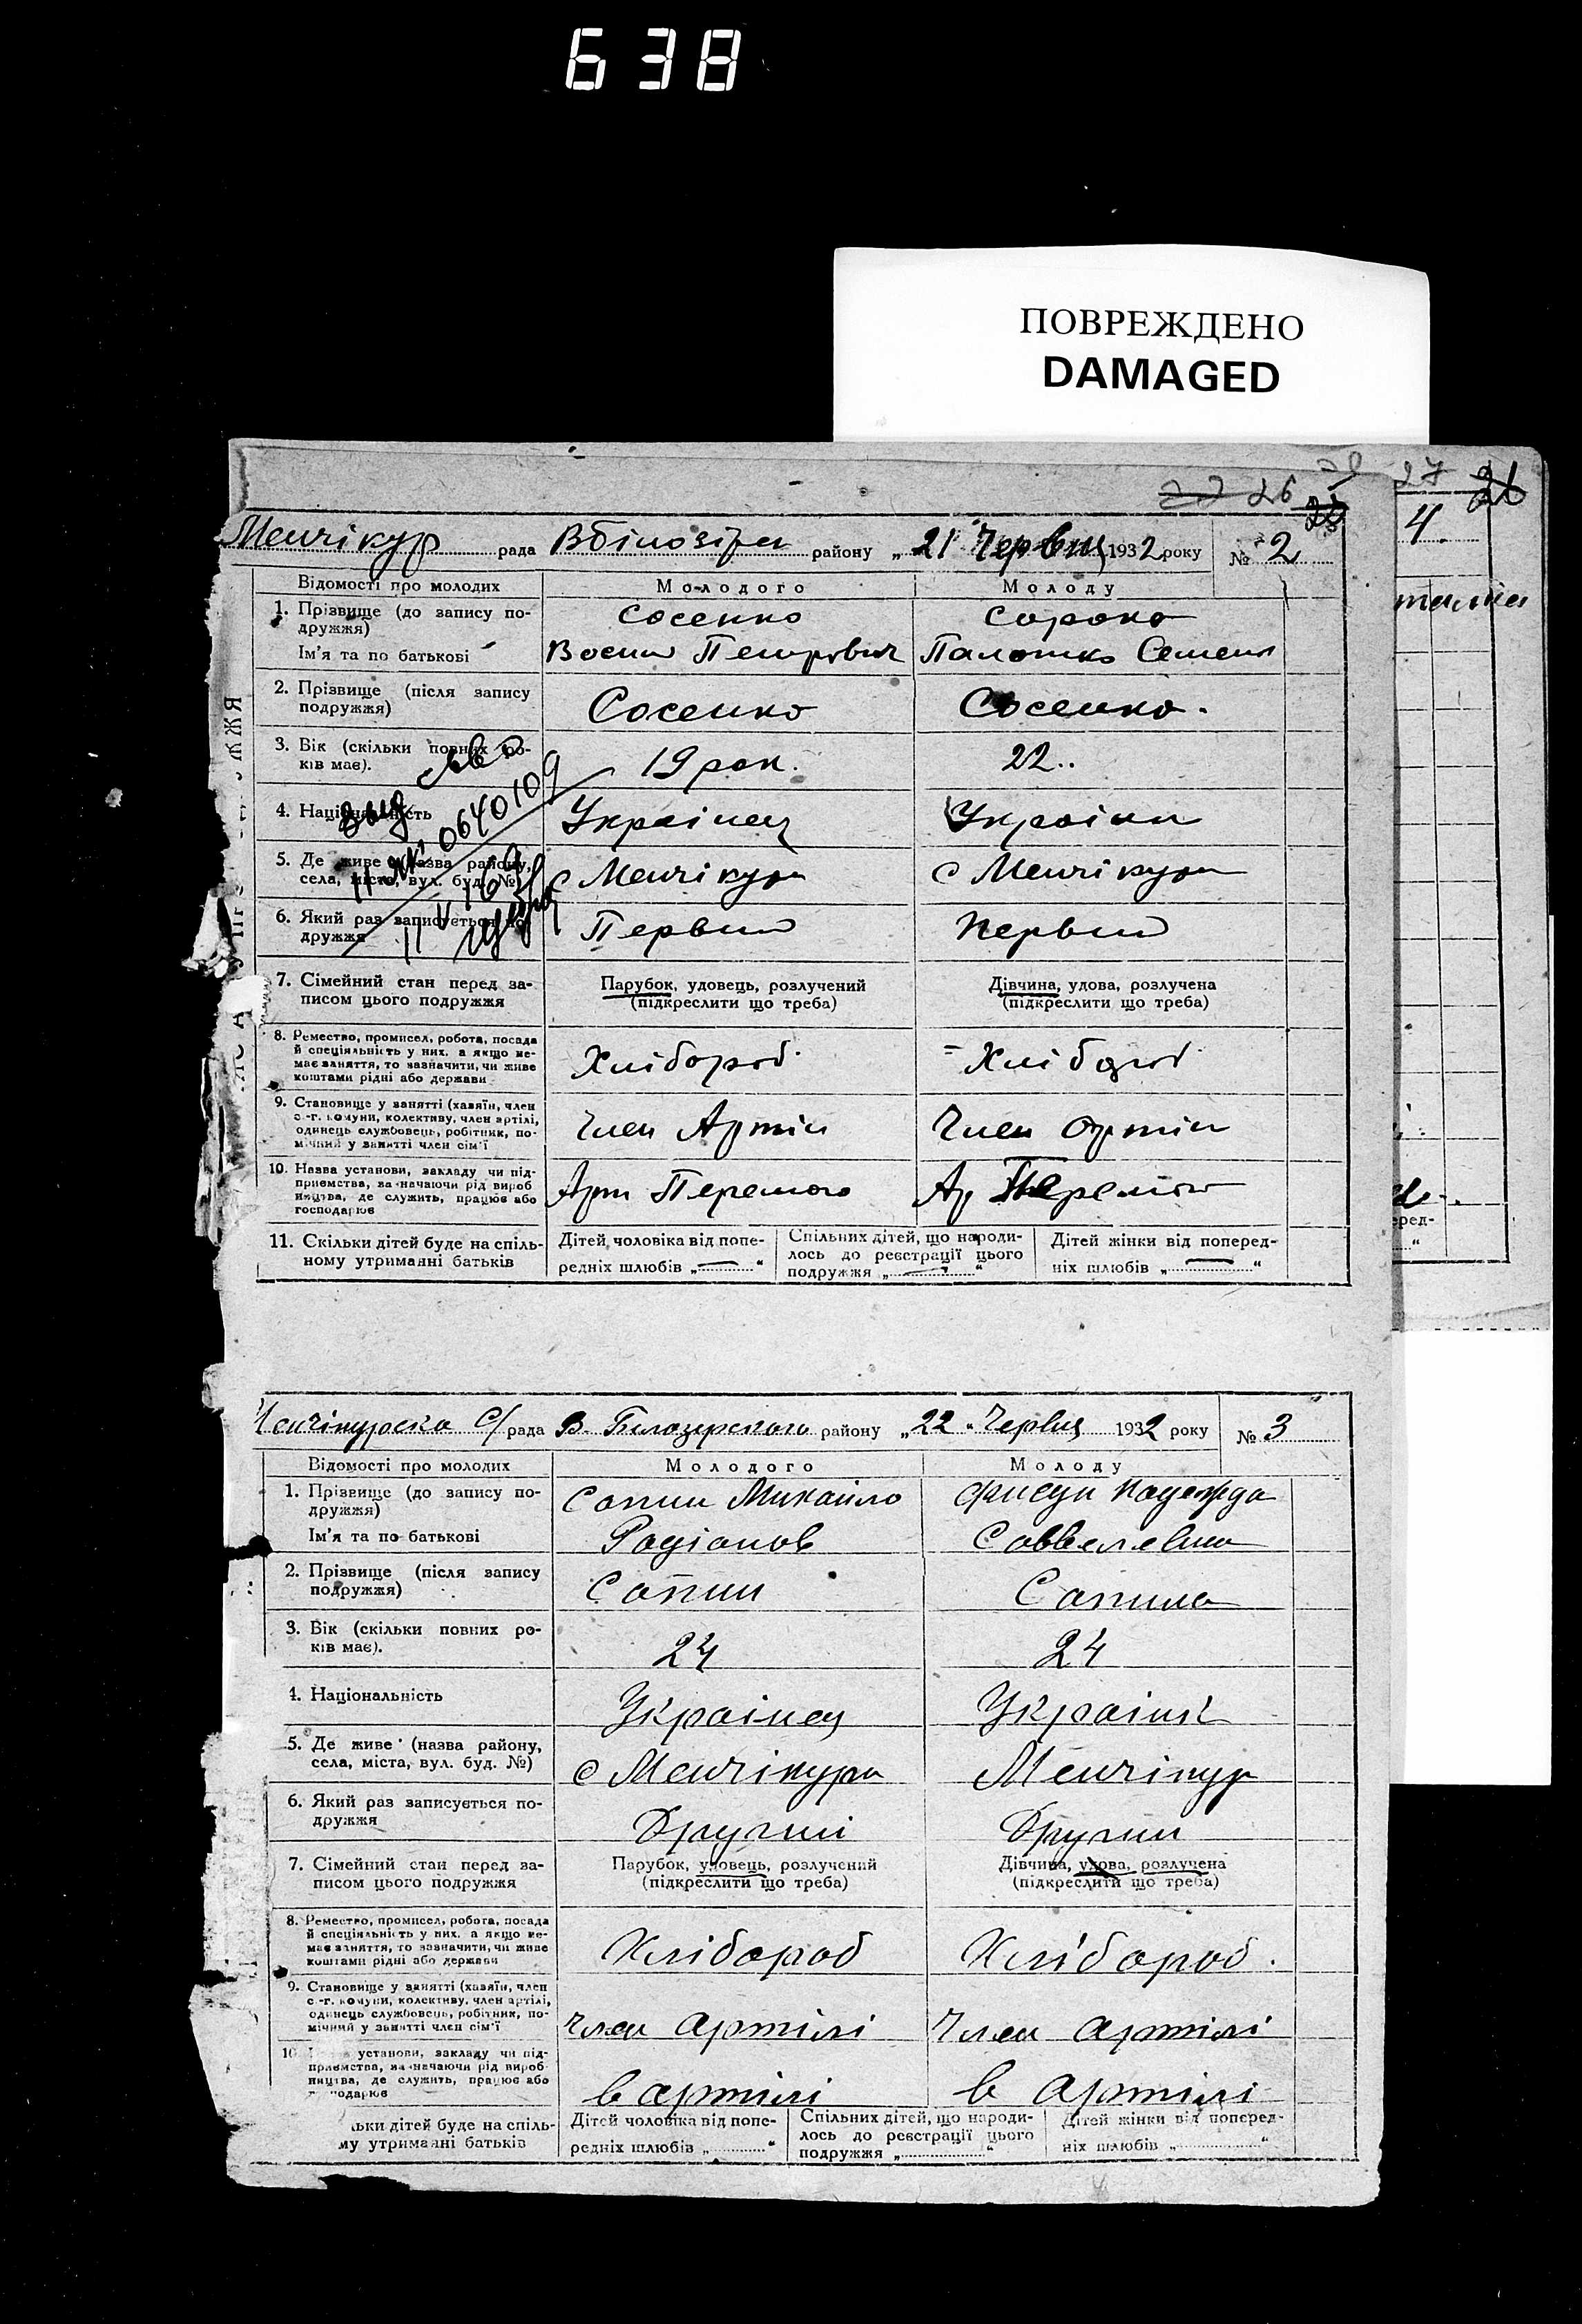 638
ПОВРЕЖДЕНО
DAMAGED
26
27
Менчікур рада Вбілозірка району „21 Червня 1932 року № 2
4
Відомості про молодих Молодого Молоду
1. Прізвище (до запису по-
дружжя) Сосенко Сороко
Ім'я та по батькові Петрович Семен
2. Прізвище (після запису
подружжя) Сосенко Сосенко.
3. Вік (скільки повних ро-
ків має). 19 рок. 22..
4. Національність Українец Українк
0640109
5. Де живе (назва району,
села, міста, вул. буд. №) с Менчікури с Менчікури
6. Який раз записується по-
дружжя Первий Первий
7. Сімейний стан перед за-
писом цього подружжя
Парубок, удовець, розлучений
(підкреслити що треба)
Дівчина, удова, розлучена
(підкреслити що треба)
8. Ремество, промисел, робота, посада
й спеціяльність у них, а якщо не-
має заняття, то зазначити, чи живе
коштами рідні або держави
Хлібороб Хлібороб
9. Становище у занятті (хазяїн, член
с.-г. комуни, колективу, член артілі,
одинець службовець, робітник, по-
мічний у занятті член сім'ї
Член Артіли Член Артіли
10. Назва установи, закладу чи під-
приємства, зазначаючи рід вироб
ництва, де служить, працює або
господарює
Арт Перемога Ар Перемога
11. Скільки дітей буде на спіль-
ному утриманні батьків
Дітей чоловіка від попе-
редніх шлюбів „—“
Спільних дітей, що народи-
лось до реєстрації цього
подружжя „—“
Дітей жінки від поперед-
ніх шлюбів „—“
Менчікурска С/рада В. Білозерского району „22 “ Червня 1932 року № 3
Відомості про молодих Молодого Молоду
1. Прізвище (до запису по-
дружжя) Сапин Михайло Надежда
Ім'я та по батькові Радіонов Савелевна
2. Прізвище (після запису
подружжя) Сапин Сапина
3. Вік (скільки повних ро-
ків має). 24 24
4. Національність Українец Українк
5. Де живе (назва району,
села, міста, вул. буд. №) с Менчікури Менчікур
6. Який раз записується по-
дружжя Другий Другий
7. Сімейний стан перед за-
писом цього подружжя
Парубок, удовець, розлучений
(підкреслити що треба)
Дівчина, удова, розлучена
(підкреслити що треба)
8. Ремество, промисел, робота, посада
й спеціяльність у них, а якщо не-
має заняття, то зазначити, чи живе
коштами рідні або держави
Хлібороб Хлібороб.
9. Становище у занятті (хазяїн, член
с.-г. комуни, колективу, член артілі,
одинець службовець, робітник, по-
мічний у занятті член сім'ї
Член артілі Член артілі
10 установи, закладу чи під-
приємства, зазначаючи рід вироб
ництва, де служить, працює або
подарює
в артілі в артілі
льки дітей буде на спіль-
му утриманні батьків
Дітей чоловіка від попе-
редніх шлюбів „ “
Спільних дітей, що народи-
лось до реєстрації цього
подружжя „ “
Дітей жінки від поперед-
ніх шлюбів „ “